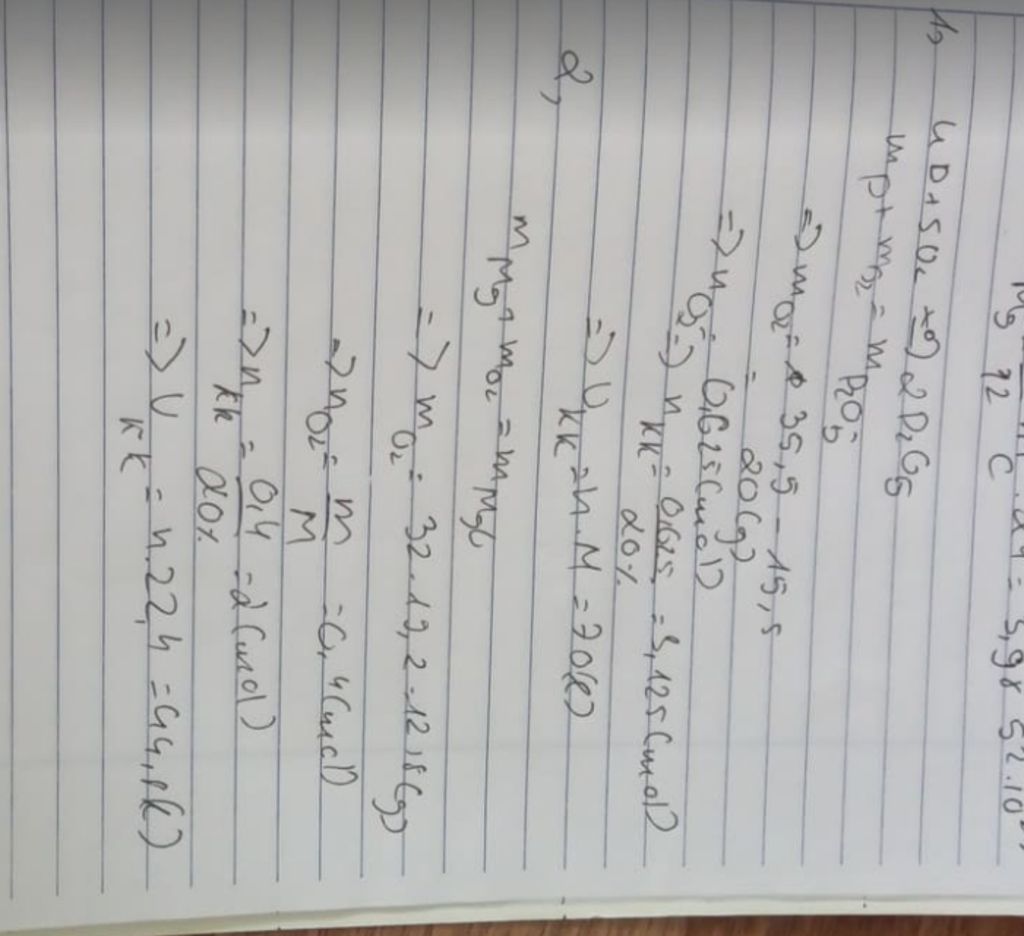 Mg 72 C = 5,98 52.10
1, 4P + 5O2 t°→ 2P2O5
mP + mO2 = mP2O5
=> mO2 = 35,5 - 15,5
= 20(g)
=> nO2 = 0,625(mol)
=> nkk = 0,625/20% = 3,125(mol)
=> Vkk = n.M = 70(l)
2, mMg + mO2 = mMgO
=> mO2 = 32 - 19,2 = 12,8(g)
=> nO2 = m/M = 0,4(mol)
=> nkk = 0,4/20% = 2(mol)
=> Vkk = n.22,4 = 44,8(l)